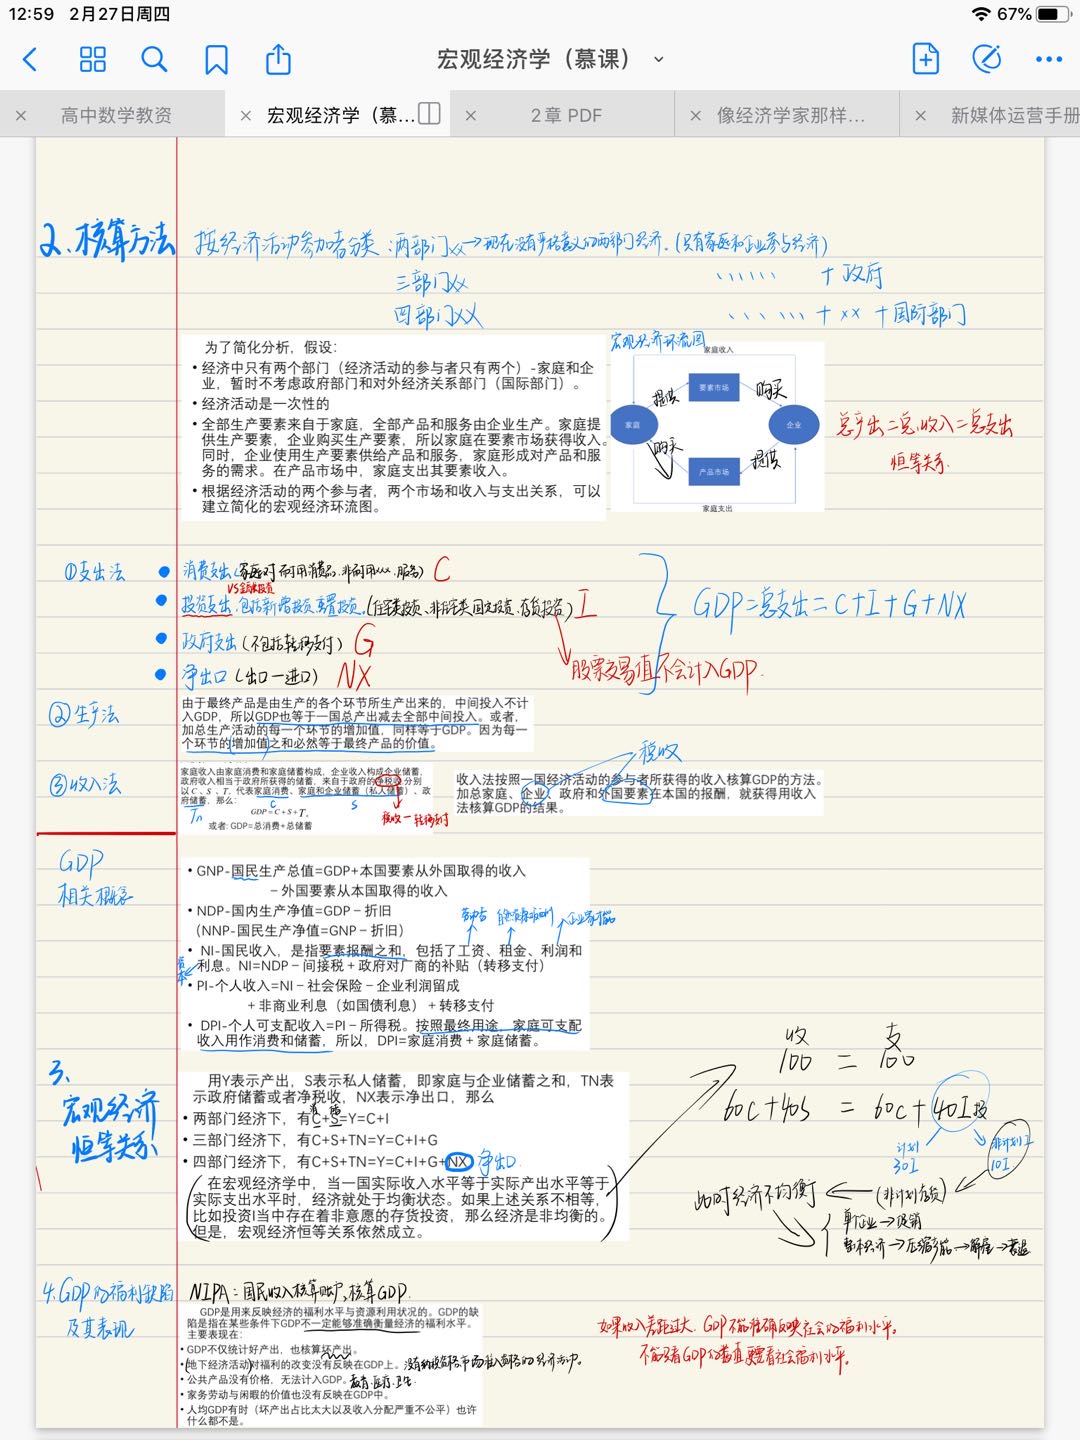 12:59 2月27日周四
67%
宏观经济学（慕课）
高中数学教资
宏观经济学（慕...
2章 PDF
像经济学家那样...
新媒体运营手册
2、核算方法
按经济活动参加者分类：两部门xx→现在没有严格意义的两部门经济.(只有家庭和企业参与经济)
三部门xx 、、、、、、 +政府
四部门xx 、、、、、、 + xx +国际部门
为了简化分析，假设：
• 经济中只有两个部门（经济活动的参与者只有两个）-家庭和企
业，暂时不考虑政府部门和对外经济关系部门（国际部门）。
• 经济活动是一次性的
• 全部生产要素来自于家庭，全部产品和服务由企业生产。家庭提
供生产要素，企业购买生产要素，所以家庭在要素市场获得收入。
同时，企业使用生产要素供给产品和服务，家庭形成对产品和服
务的需求。在产品市场中，家庭支出其要素收入。
• 根据经济活动的两个参与者，两个市场和收入与支出关系，可以
建立简化的宏观经济环流图。
宏观经济环流图
家庭收入
要素市场
提供
购买
家庭
企业
购买
提供
产品市场
家庭支出
总产出=总收入=总支出
恒等关系.
①支出法
• 消费支出(家庭对耐用消费品.非耐用xx.服务) C
VS金融投资
• 投资支出.包括新增投资.重置投资.(住宅投资.非住宅类固定投资.存货投资) I
• 政府支出(不包括转移支付) G
• 净出口(出口-进口) NX
GDP=总支出=C+I+G+NX
股票交易值不会计入GDP.
②生产法
由于最终产品是由生产的各个环节所生产出来的，中间投入不计
入GDP，所以GDP也等于一国总产出减去全部中间投入。或者，
加总生产活动的每一个环节的增加值，同样等于GDP。因为每一
个环节的增加值之和必然等于最终产品的价值。
③收入法
家庭收入由家庭消费和家庭储蓄构成，企业收入构成企业储蓄，
政府收入相当于政府所获得的储蓄，来自于政府的净税收分别
以 C、S、T。代表家庭消费、家庭和企业储蓄（私人储蓄）、政
府储蓄，那么：
C S
Tn
GDP = C + S + T。
或者: GDP=总消费+总储蓄
税收-转移支付
税收
收入法按照一国经济活动的参与者所获得的收入核算GDP的方法。
加总家庭、企业、政府和外国要素在本国的报酬，就获得用收入
法核算GDP的结果。
GDP
相关概念
• GNP-国民生产总值=GDP+本国要素从外国取得的收入
－外国要素从本国取得的收入
• NDP-国内生产净值=GDP－折旧
（NNP-国民生产净值=GNP－折旧）
劳动者
企业家才能
• NI-国民收入，是指要素报酬之和，包括了工资、租金、利润和
利息。NI=NDP－间接税+政府对厂商的补贴（转移支付）
资本
• PI-个人收入=NI－社会保险－企业利润留成
+非商业利息（如国债利息）+转移支付
• DPI-个人可支配收入=PI－所得税。按照最终用途，家庭可支配
收入用作消费和储蓄，所以，DPI=家庭消费+家庭储蓄。
3、
宏观经济
恒等关系
用Y表示产出，S表示私人储蓄，即家庭与企业储蓄之和，TN表
示政府储蓄或者净税收，NX表示净出口，那么
• 两部门经济下，有C+S=Y=C+I
• 三部门经济下，有C+S+TN=Y=C+I+G
• 四部门经济下，有C+S+TN=Y=C+I+G+NX 净出口.
在宏观经济学中，当一国实际收入水平等于实际产出水平等于
实际支出水平时，经济就处于均衡状态。如果上述关系不相等，
比如投资I当中存在着非意愿的存货投资，那么经济是非均衡的。
但是，宏观经济恒等关系依然成立。
收 支
100 = 100
60C+40S = 60C+40I投
计划 30I
非计划I 10I
此时经济不均衡 ← (非计划存货)
单个企业→促销
整体经济→压缩产能→解雇→衰退
4.GDP的福利缺陷
及其表现
NIPA：国民收入核算账户,核算GDP.
GDP是用来反映经济的福利水平与资源利用状况的。GDP的缺
陷是指在某些条件下GDP不一定能够准确衡量经济的福利水平。
主要表现在：
• GDP不仅统计好产出，也核算坏产出。
• 地下经济活动对福利的改变没有反映在GDP上。
• 公共产品没有价格，无法计入GDP。教育.医疗.卫生.
• 家务劳动与闲暇的价值也没有反映在GDP中。
• 人均GDP有时（坏产出占比太大以及收入分配严重不公平）也许
什么都不是。
如果收入差距过大，GDP不能准确反映社会的福利水平。
不能只看GDP的数值,更要看社会福利水平。